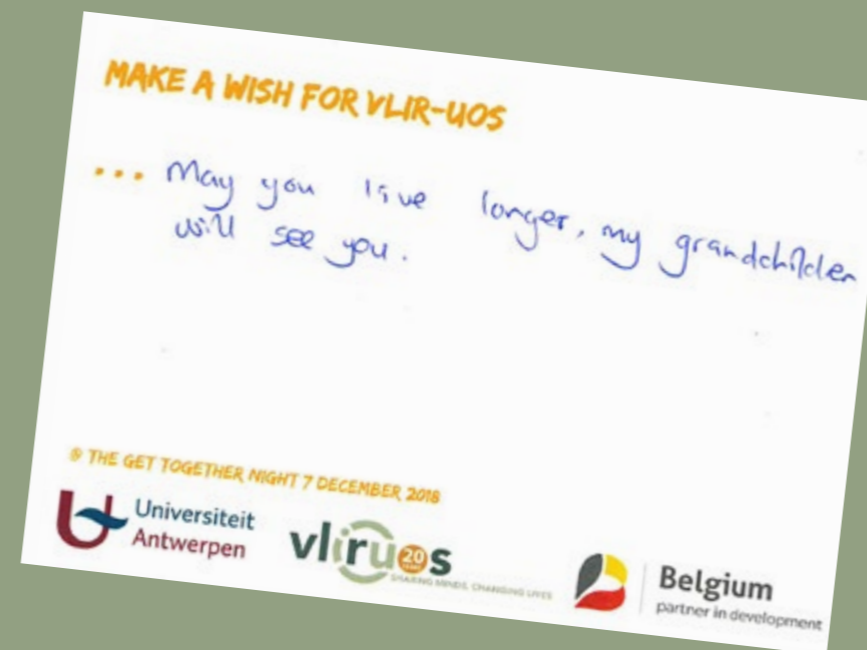 MAKE A WISH FOR VLIR-UOS
... May you live longer, my grandchilden
will see you.
@ THE GET TOGETHER NIGHT 7 DECEMBER 2018
Universiteit
Antwerpen
vliruos
20
SHARING MINDS, CHANGING LIVES
Belgium
partner in development